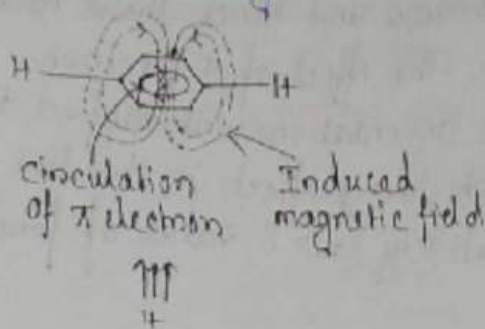 H
H
Circulation
of π electron
Induced
magnetic field
↑↑↑
H